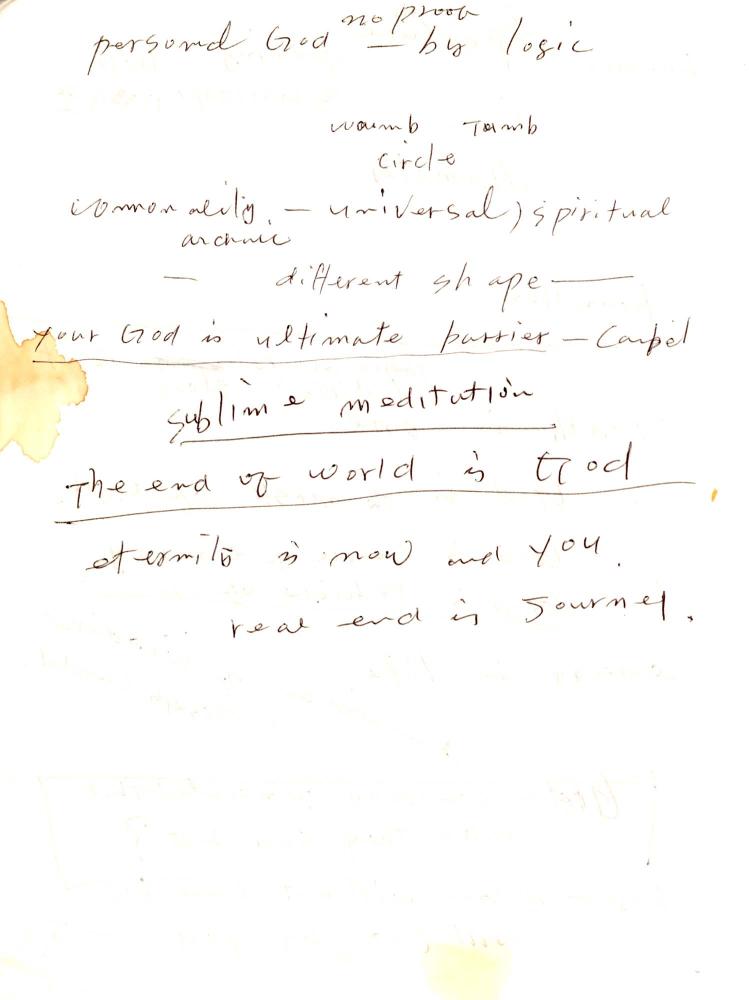 no proof
personal God — by logic
waumb Tamb
circle
commonality. — universal, spiritual
— different shape —
your God is ultimate barrier —
sublime meditution
The end of world is God
is now and you.
real end is Journey.